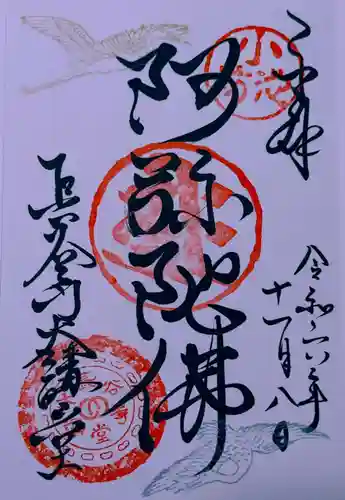 奉拝
令和六年
十一月八日
阿弥陀佛
長谷寺大講堂